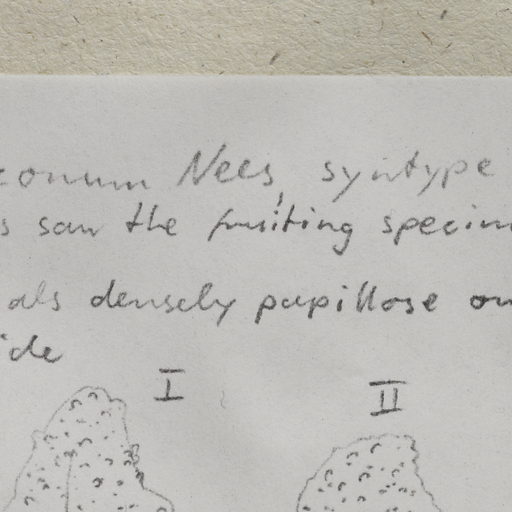 conum Nees, syntype
s saw the fruiting specim
als densely papillose on
ide
I II